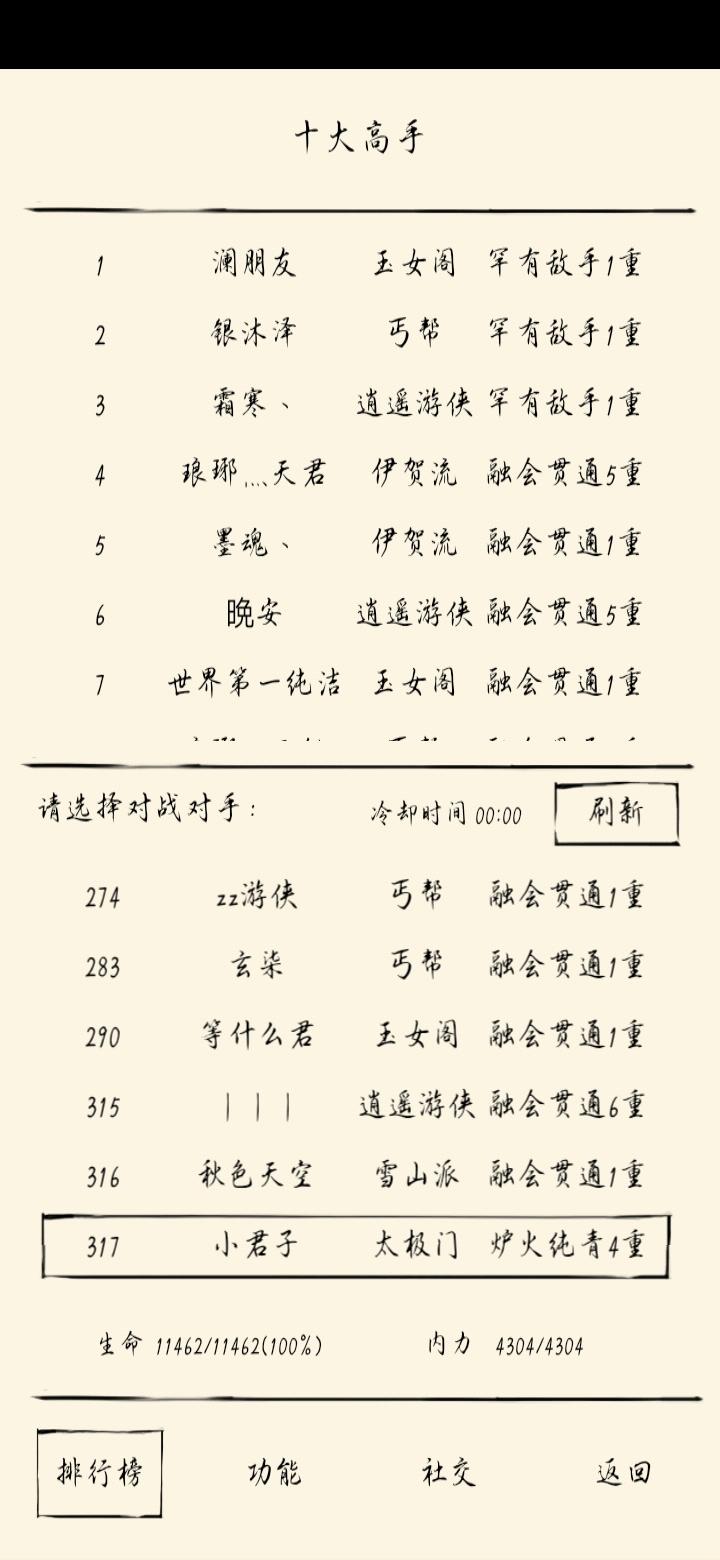 十大高手
1 澜朋友 玉女阁 罕有敌手1重
2 银沐泽 丐帮 罕有敌手1重
3 霜寒、 逍遥游侠 罕有敌手1重
4 琅琊灬天君 伊贺流 融会贯通5重
5 墨魂、 伊贺流 融会贯通1重
6 晚安 逍遥游侠 融会贯通5重
7 世界第一纯洁 玉女阁 融会贯通1重
请选择对战对手： 冷却时间 00:00 刷新
274 zz游侠 丐帮 融会贯通1重
283 玄柒 丐帮 融会贯通1重
290 等什么君 玉女阁 融会贯通1重
315 丨丨丨 逍遥游侠 融会贯通6重
316 秋色天空 雪山派 融会贯通1重
317 小君子 太极门 炉火纯青4重
生命 11462/11462(100%) 内力 4304/4304
排行榜 功能 社交 返回